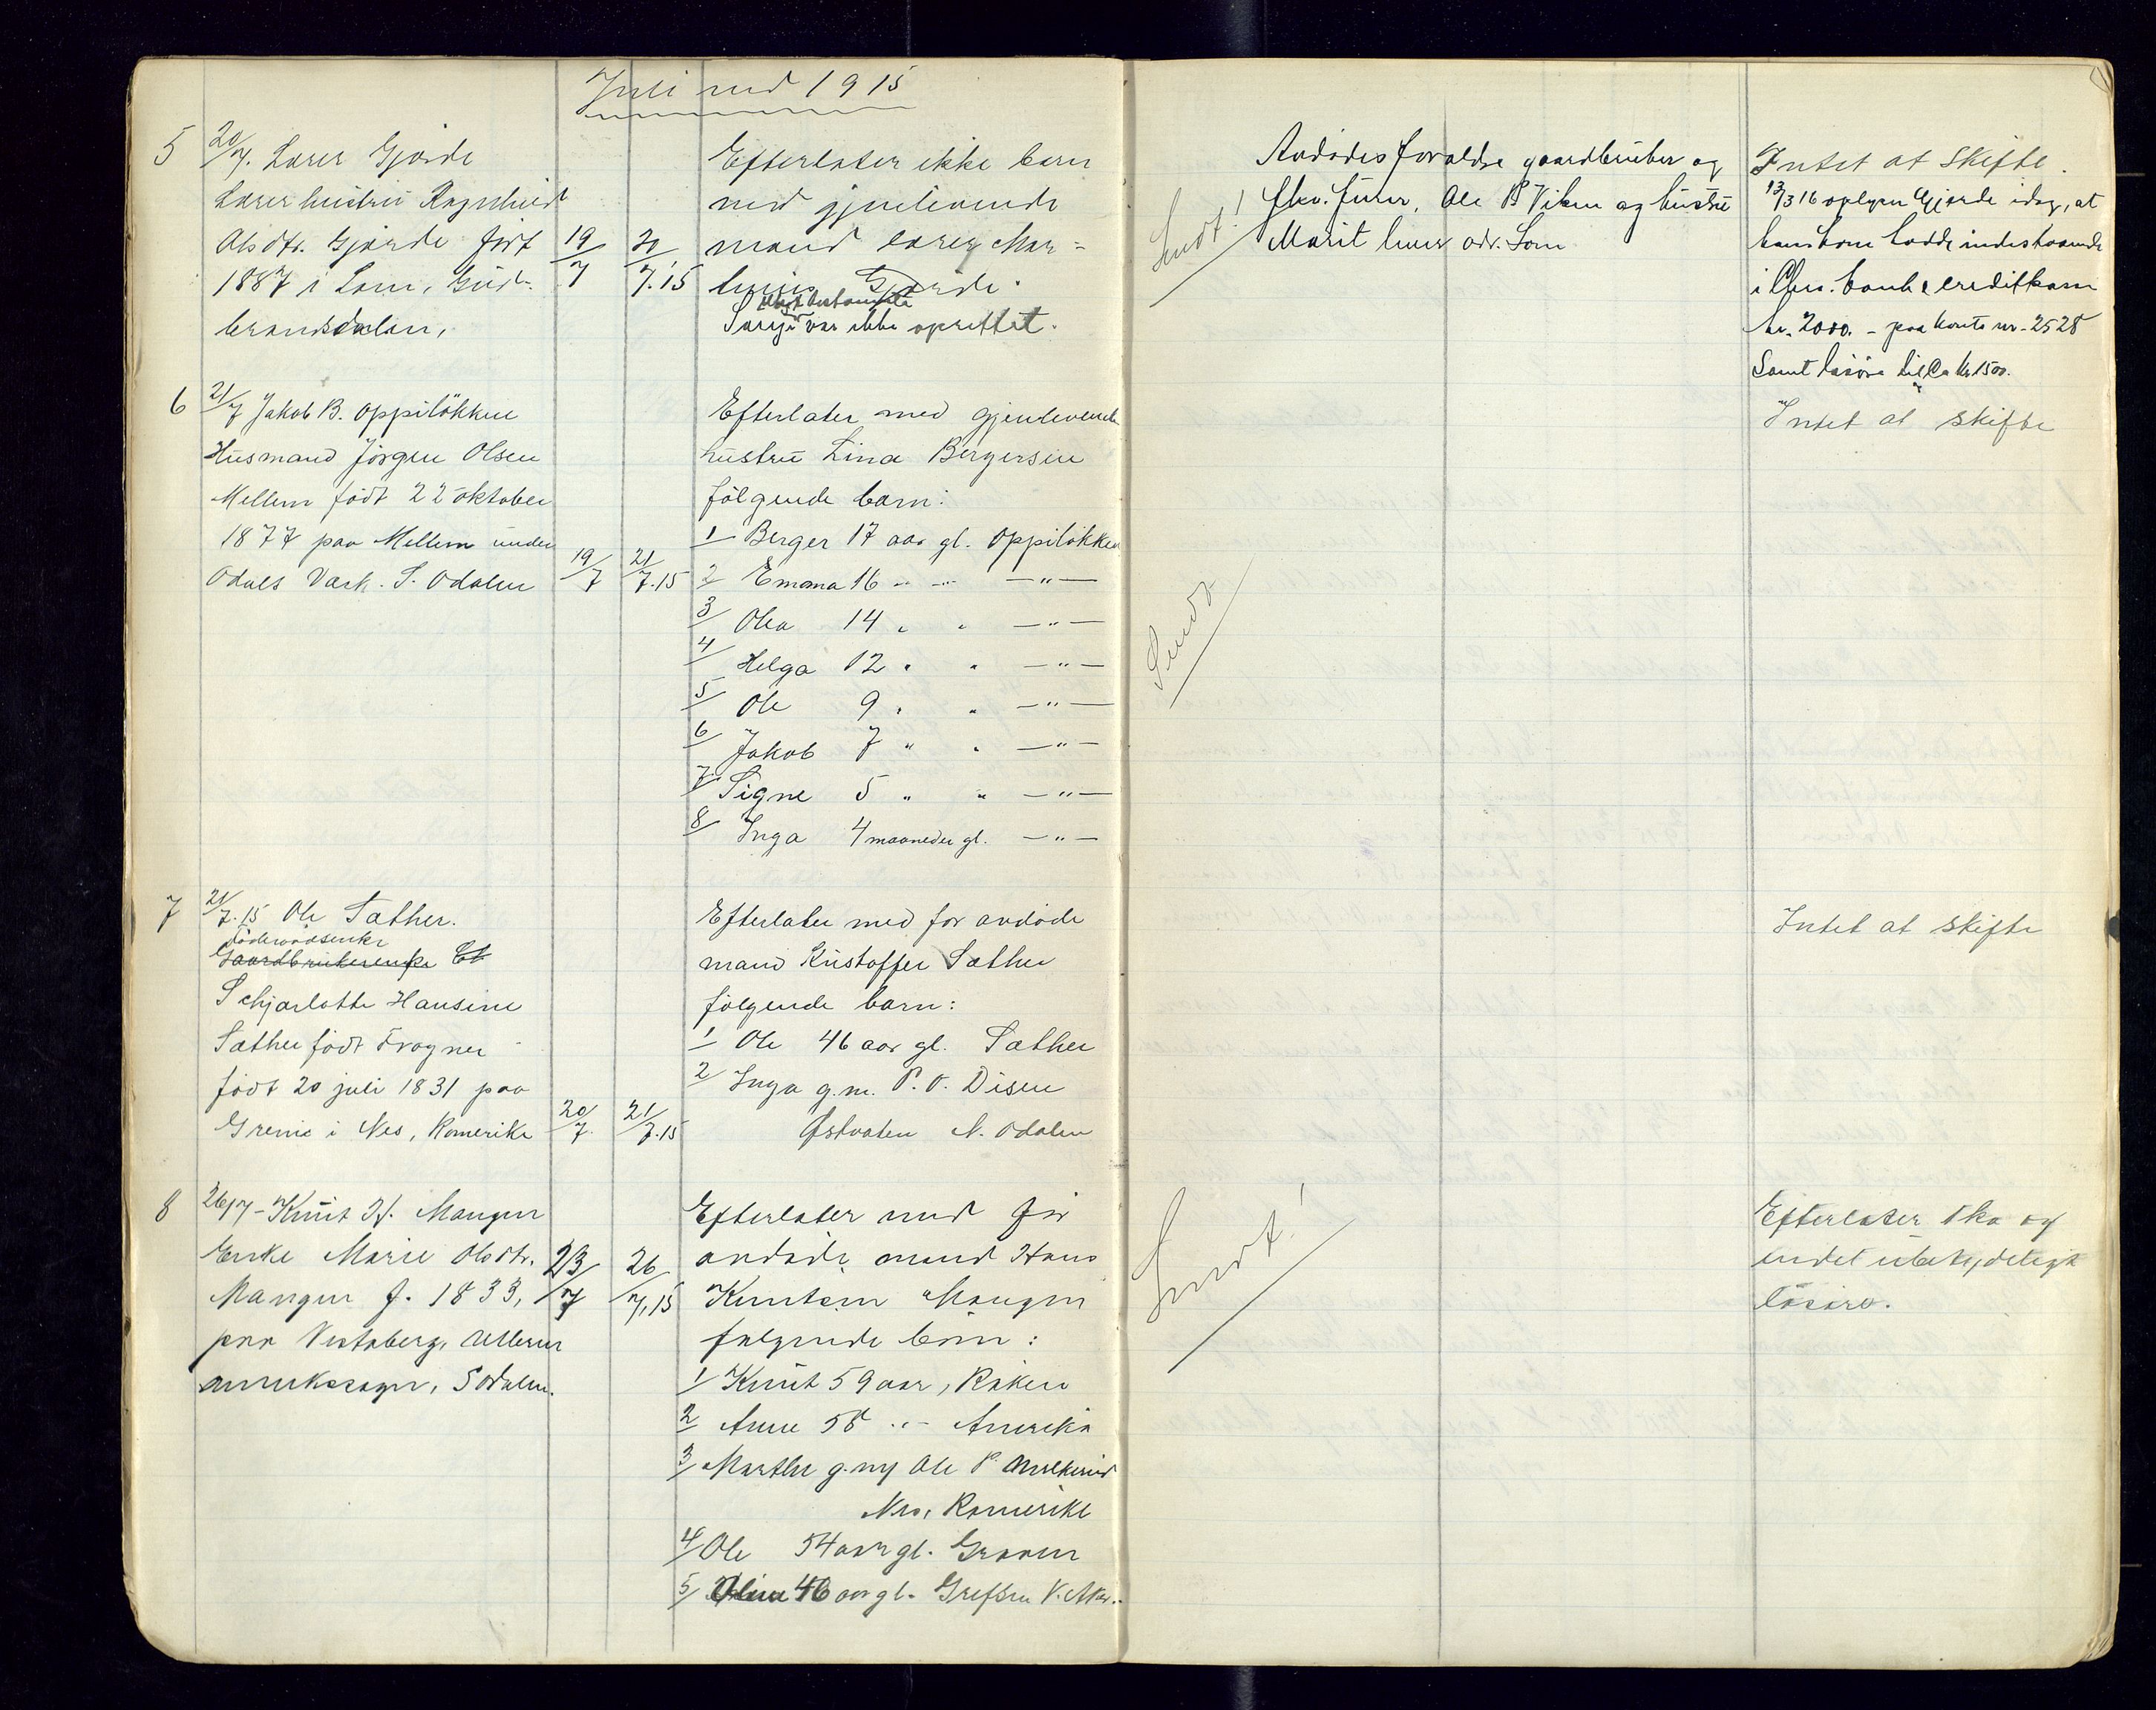 Juli md 1915
5
20/7. Lærer Gjørde
Lærerhustru Ragnhild
Olsdtr. Gjørde født
1887 i Lom, Gud-
brandsdalen,
19/7
20/7.15
Efterlater ikke barn
med gjenlevende
mand lærer Mar-
Gjørde.
var ikke oprettet.
Avdødes forældre gaardbruker og
Ole P Viken og hustru
Marit adr. Lom
Sendt!
Intet at skifte.
13/3 16 oplyser Gjørde idag, at
hans kone hadde indestaaende
i Chra. bank & creditkasse
kr. 2000. - paa konto nr. 2528
Samt løsøre til Ca kr 1500.
6
21/7 Jakob B. Oppiløkken
Husmand Jørgen Olsen
Mellem født 22 oktober
1877 paa Mellem under
Odals Værk. S. Odalen
19/7
21/7.15
Efterlater med gjenlevende
hustru Lina Bergersen
følgende barn:
1 Berger 17 aar gl. Oppiløkken
2 Emma 16 " " — " —
3 Olea 14 " " — " —
4 Helga 12 " " — " —
5 Ole 9 " " — " —
6 Jakob 7 " " — " —
7 Signe 5 " " — " —
8 Inga 4 maaneder gl. — " —
Sendt
Intet at skifte
7
21/7.15 Ole Sæther.
Føderaadsenke
Gaardbrukerenke
Schjarlotte Hansine
Sæther født Frogner
født 20 juli 1831 paa
Grenie i Nes, Romerike
20/7.
21/7.15
Efterlater med før avdøde
mand Kristoffer Sæther
følgende barn:
1 Ole 46 aar gl. Sæther
2 Inga g.m. P. O. Disen
Østvaten N. Odalen
Intet at skifte
8
26/7 - Knut H. Mangen
Enke Marie Olsdtr.
Mangen f. 1833,
paa Vestaberg, Ullern
annekssogn, S Odalen.
23/7
26/7,15
Efterlater med før
avdøde mand Hans
Knutsen Mangen
følgende børn:
1 Knut 59 aar, Råken
2 Anne 58 " - Amerika
3 Marthe g. m Ole P.
Nes, Romerike
4 Ole 54 aar gl. Graven
5 Oline 46 aar gl. Grefsen V. Aker.
Sendt!
Efterlater 1 ko og
endel ubetydeligt
løsøre.